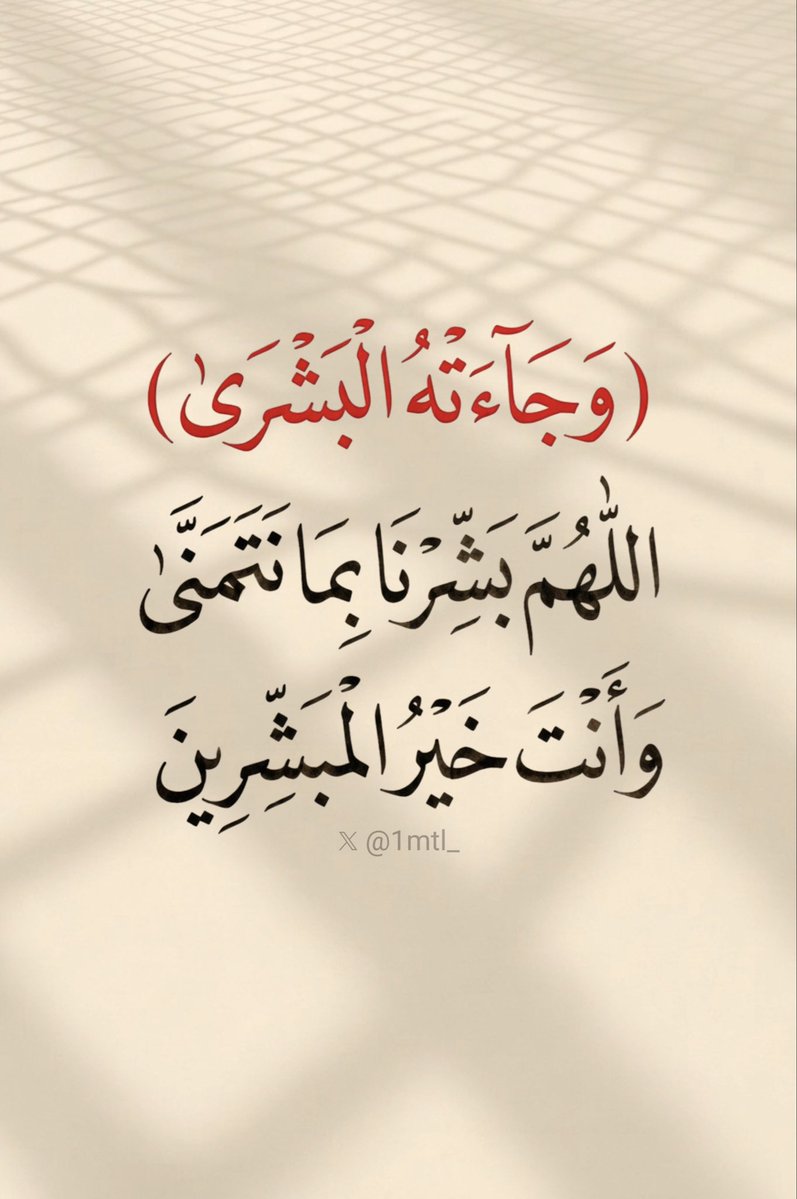 (وَجَآءَتْهُ الْبَشْرَىٰ)
اللّٰهُمَّ بَشِّرْنَا بِمَا نَتَمَنَّىٰ
وَأَنْتَ خَيْرُ الْمَبَشِّرِينَ
𝕏 @1mtl_